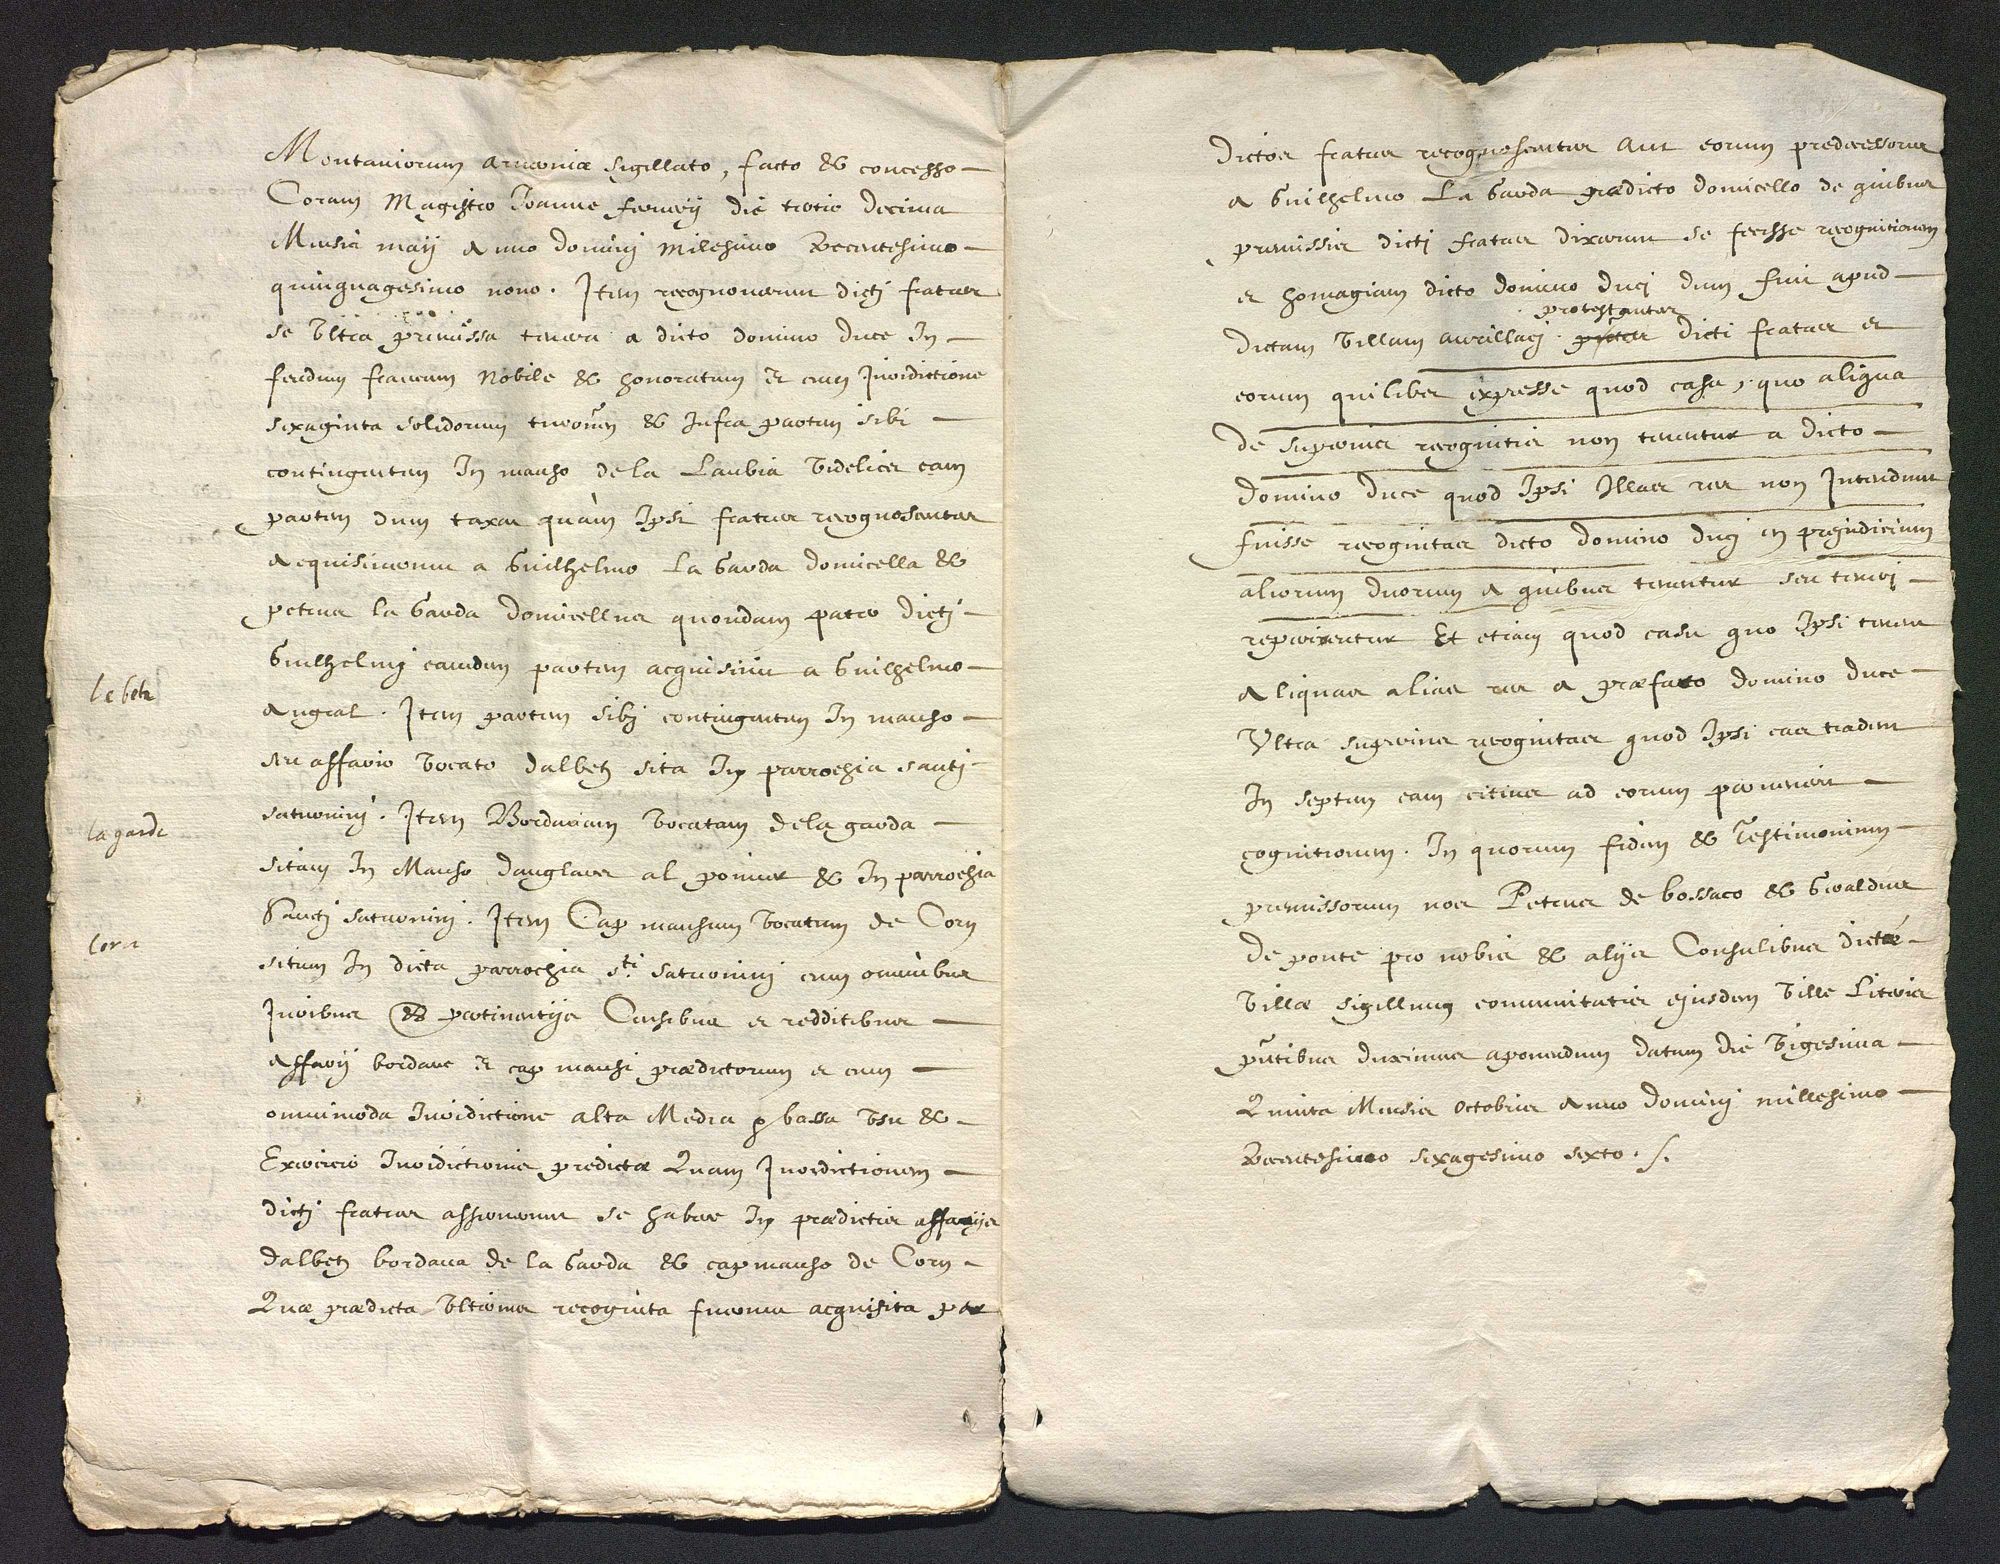 Montanorum arverniæ sigillato, facto & concesso
Coram Magistro Joanne ferrerij die tertio decima
Mensis maij Anno dominj milesimo tercentesimo
quinquagesimo nono. Item recognoverunt dictj fratres
se Vltra premissa tenere a dicto domino duce In
feudum francum Nobile & honoratum et cum Jurisdictione
sexaginta solidorum turonum & Infra partem sibi
contingentem In manso de la Laubia Videlicet eam
partem dum taxat quàm Ipsi fratres recognoscentes
Acquisiverunt a Guilhelmo La Garda domicello &
petrus la Garda domicellus quondam pater dictj
Guilhelmj eamdem partem acquisivit a Guilhelmo
Angral. Item partem sibj contingentem In manso
seu affario Vocato dalbetz sita In parrochia sanctj
le betz
saturninj. Item Bordariam Vocatam dela garda
la garde
sitam In Manso danglares al pomier & In parrochia
Sanctj saturninj. Item Cap mansum Vocatum de Corn
Corn
situm In dicta parrochia s.ti saturninj cum omnibus
Juribus & pertinentijs Censibus et redditibus
Affarij bordarie et cap mansi prædictorum et cum
omnimoda Jurisdictione alta Media et bassa Vsu &
Exercicio Jurisdictionis predictæ Quam Jurisdictionem
dictj fratres asseruerunt se habere In prædictis affarijs
dalbetz bordaria de la Garda & capmanso de Corn
Quæ prædicta Vltimo recognita fuerunt acquisita per
dictos fratres recognoscentes aut eorum predecessores
A Guilhelmo La Garda prædicto domicello de quibus
premissis dicti fratres dixerunt se fecisse recognitionem
et homagium dicto domino ducj dum fuit apud
protestantur
dictam Villam aurillacj. dicti fratres et
eorum quilibet expresse quod casu, quo aliqua
de superius recognitis non tenentur a dicto
domino duce quod Ipsi Illas res non Intendunt
fuisse recognitas dicto domino ducj in prejudicium
aliorum duorum A quibus tenentur seu tenerj
reperirentur Et etiam quod casu quo Ipsi tenent
Aliquas alias res A præfato domino duce
Vltra superius recognitas quod Ipsi eas tradent
In septem eam citius ad eorum pervenerit
cognitionem. In quorum fidem & Testimonium
premissorum nos Petrus de bossaco & Geraldus
de ponte pro nobis & alijs Consulibus dictæ
Villæ sigillum communitatis ejusdem Ville Literis
pntibus duximus aponendum datum die Vigesima
Quinta Mensis Octobris Anno dominj millesimo
tercentesimo sexagesimo sexto.